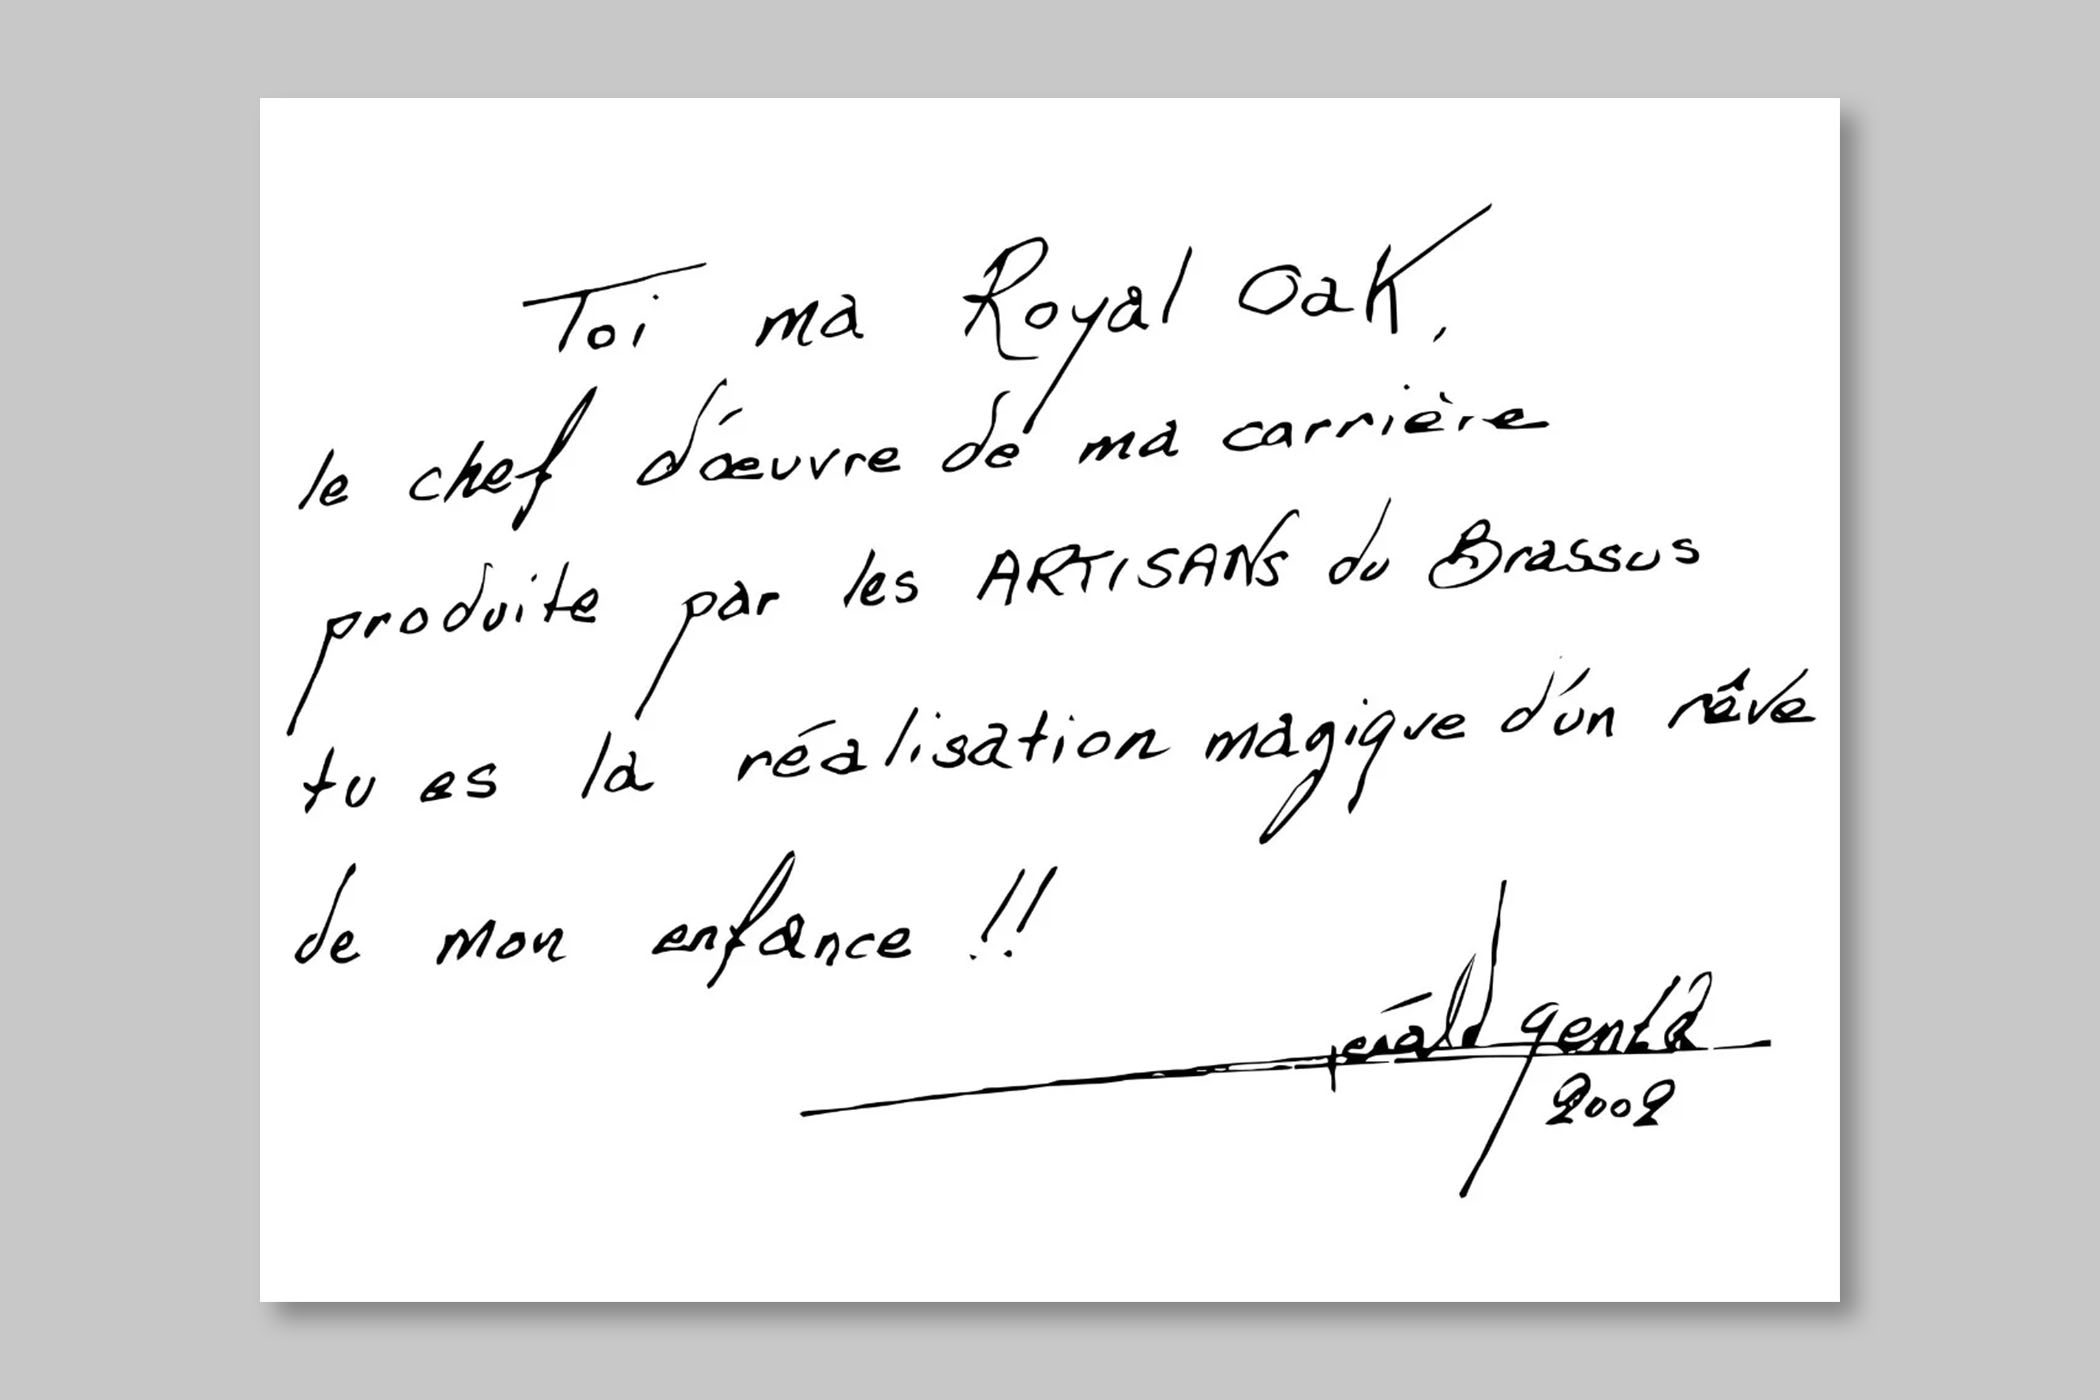 Toi ma Royal Oak,
le chef d'œuvre de ma carrière
produite par les ARTISANS du Brassus
tu es la réalisation magique d'un rêve
de mon enfance !!
gérald genta
2002